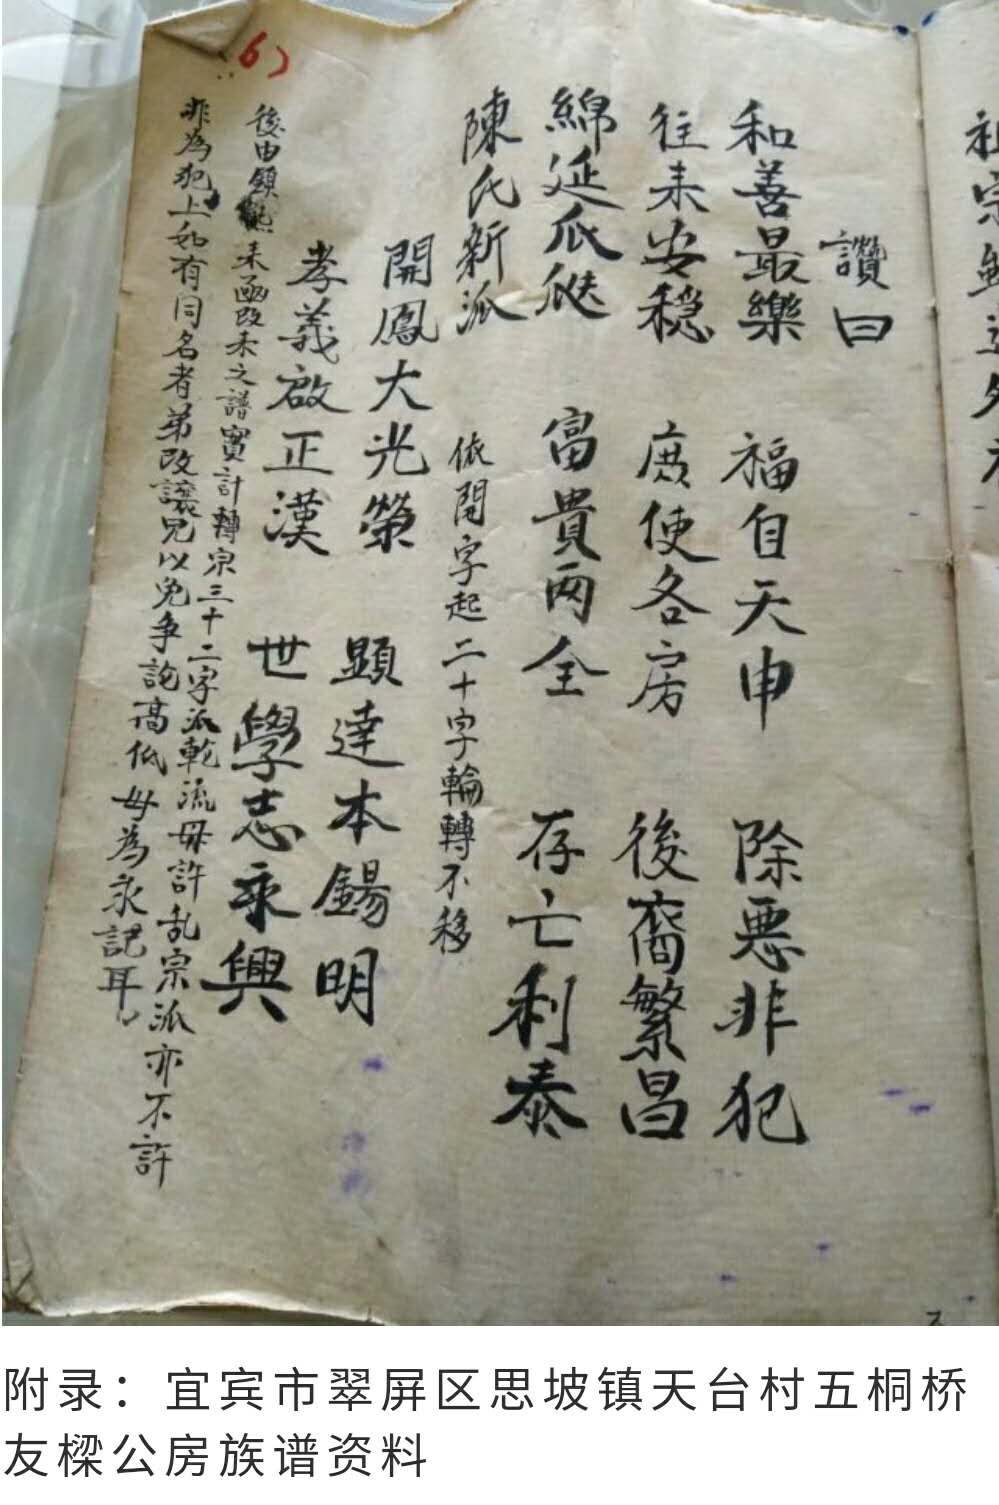 6)
讚曰
和善最樂 福自天申 除惡非犯
往来安穏 庶使各房 後裔繁昌
綿延瓜瓞 富貴両全 存亡利泰
陳氏新派 依開字起二十字輪轉不移
開鳳大光榮 顕達本錫明
孝義啟正漢 世學志永興
後由鎮 来函改未之譜實計轉宗三十二字派乾流毋許乱宗派亦不許
非為犯上如有同名者弟改讓兄以免争論高低毋為永記耳
祖宗
附录：宜宾市翠屏区思坡镇天台村五桐桥
友樑公房族谱资料